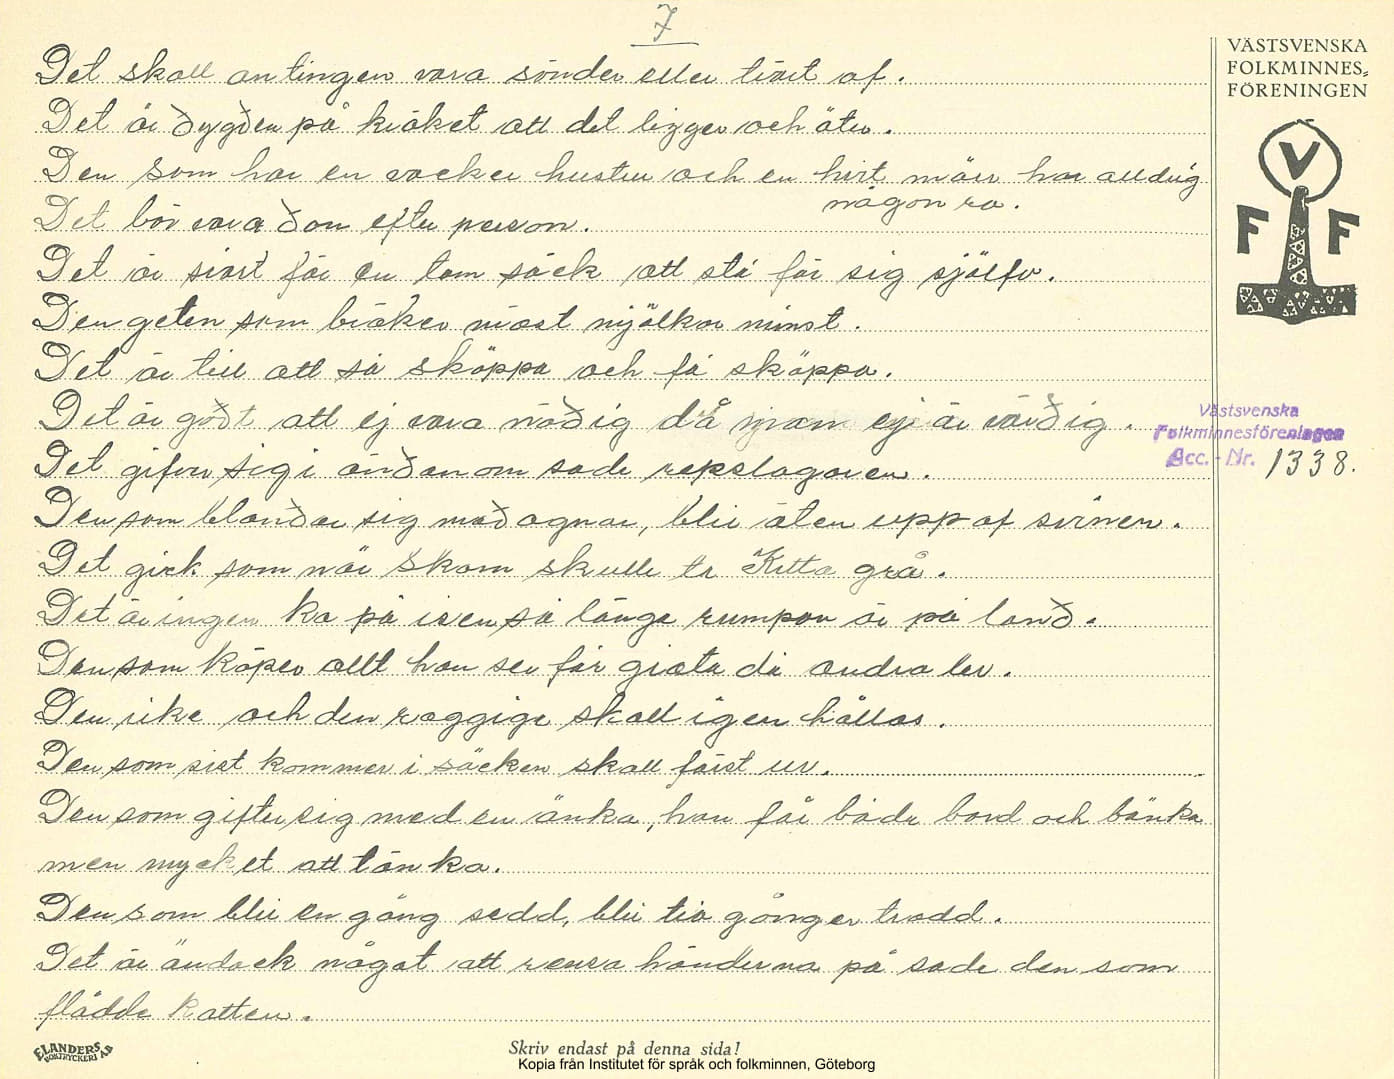 7
Det skall antingen vara sönder eller tvärt af.
Det är dygden på kräket att det ligger och äter.
Den som har en vacker hustru och en hvit märr har alldrig
någon ro.
Det bör vara don efter person.
Det är svårt för en tom säck att stå för sig sjölfv.
Den geten som bräker mäst mjölkar minst.
Det är till att så skäppa och få skäppa.
Det är godt att ej vara nödig då man ej är värdig.
Det gifver sig i ändan om sade repslagaren.
Den som blandar sig mad agnar, blir äten upp af svinen.
Det gick som när Skam skulle te Kitta grå.
Det är ingen ko på isen så länge rumpan är på land.
Den som köper allt han ser får gråta då andra ler.
Den rike och den raggige skall igen hållas.
Den som sist kommer i säcken skall först ur.
Den som gifter sig med en änka, han får både bord och bänka
men mycket att tänka.
Den som blir en gång sedd, blir tio gånger trodd.
Det är ändock något att rensa händerna på sade den som
flådde katten.
VÄSTSVENSKA
FOLKMINNES-
FÖRENINGEN
V
F F
Västsvenska
Folkminnesföreningen
Acc.-Nr. 1338.
ELANDERS
BOKTRYCKERI A.B
Skriv endast på denna sida!
Kopia från Institutet för språk och folkminnen, Göteborg